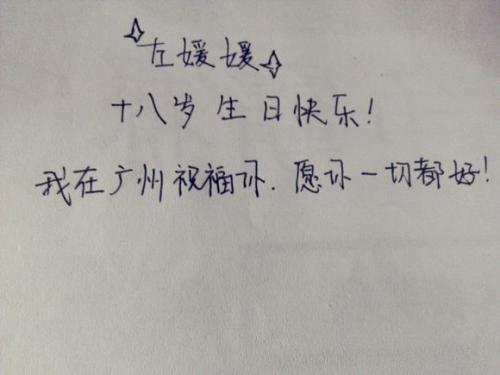 左媛媛
十八岁生日快乐!
我在广州祝福你.愿你一切都好!